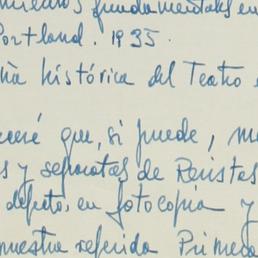 fundamentales en
Portland. 1935.
ña histórica del Teatro
ceré que, si puede, m
s y separatas de Revistas
defecto, en fotocopia y
nuestra referida Primera